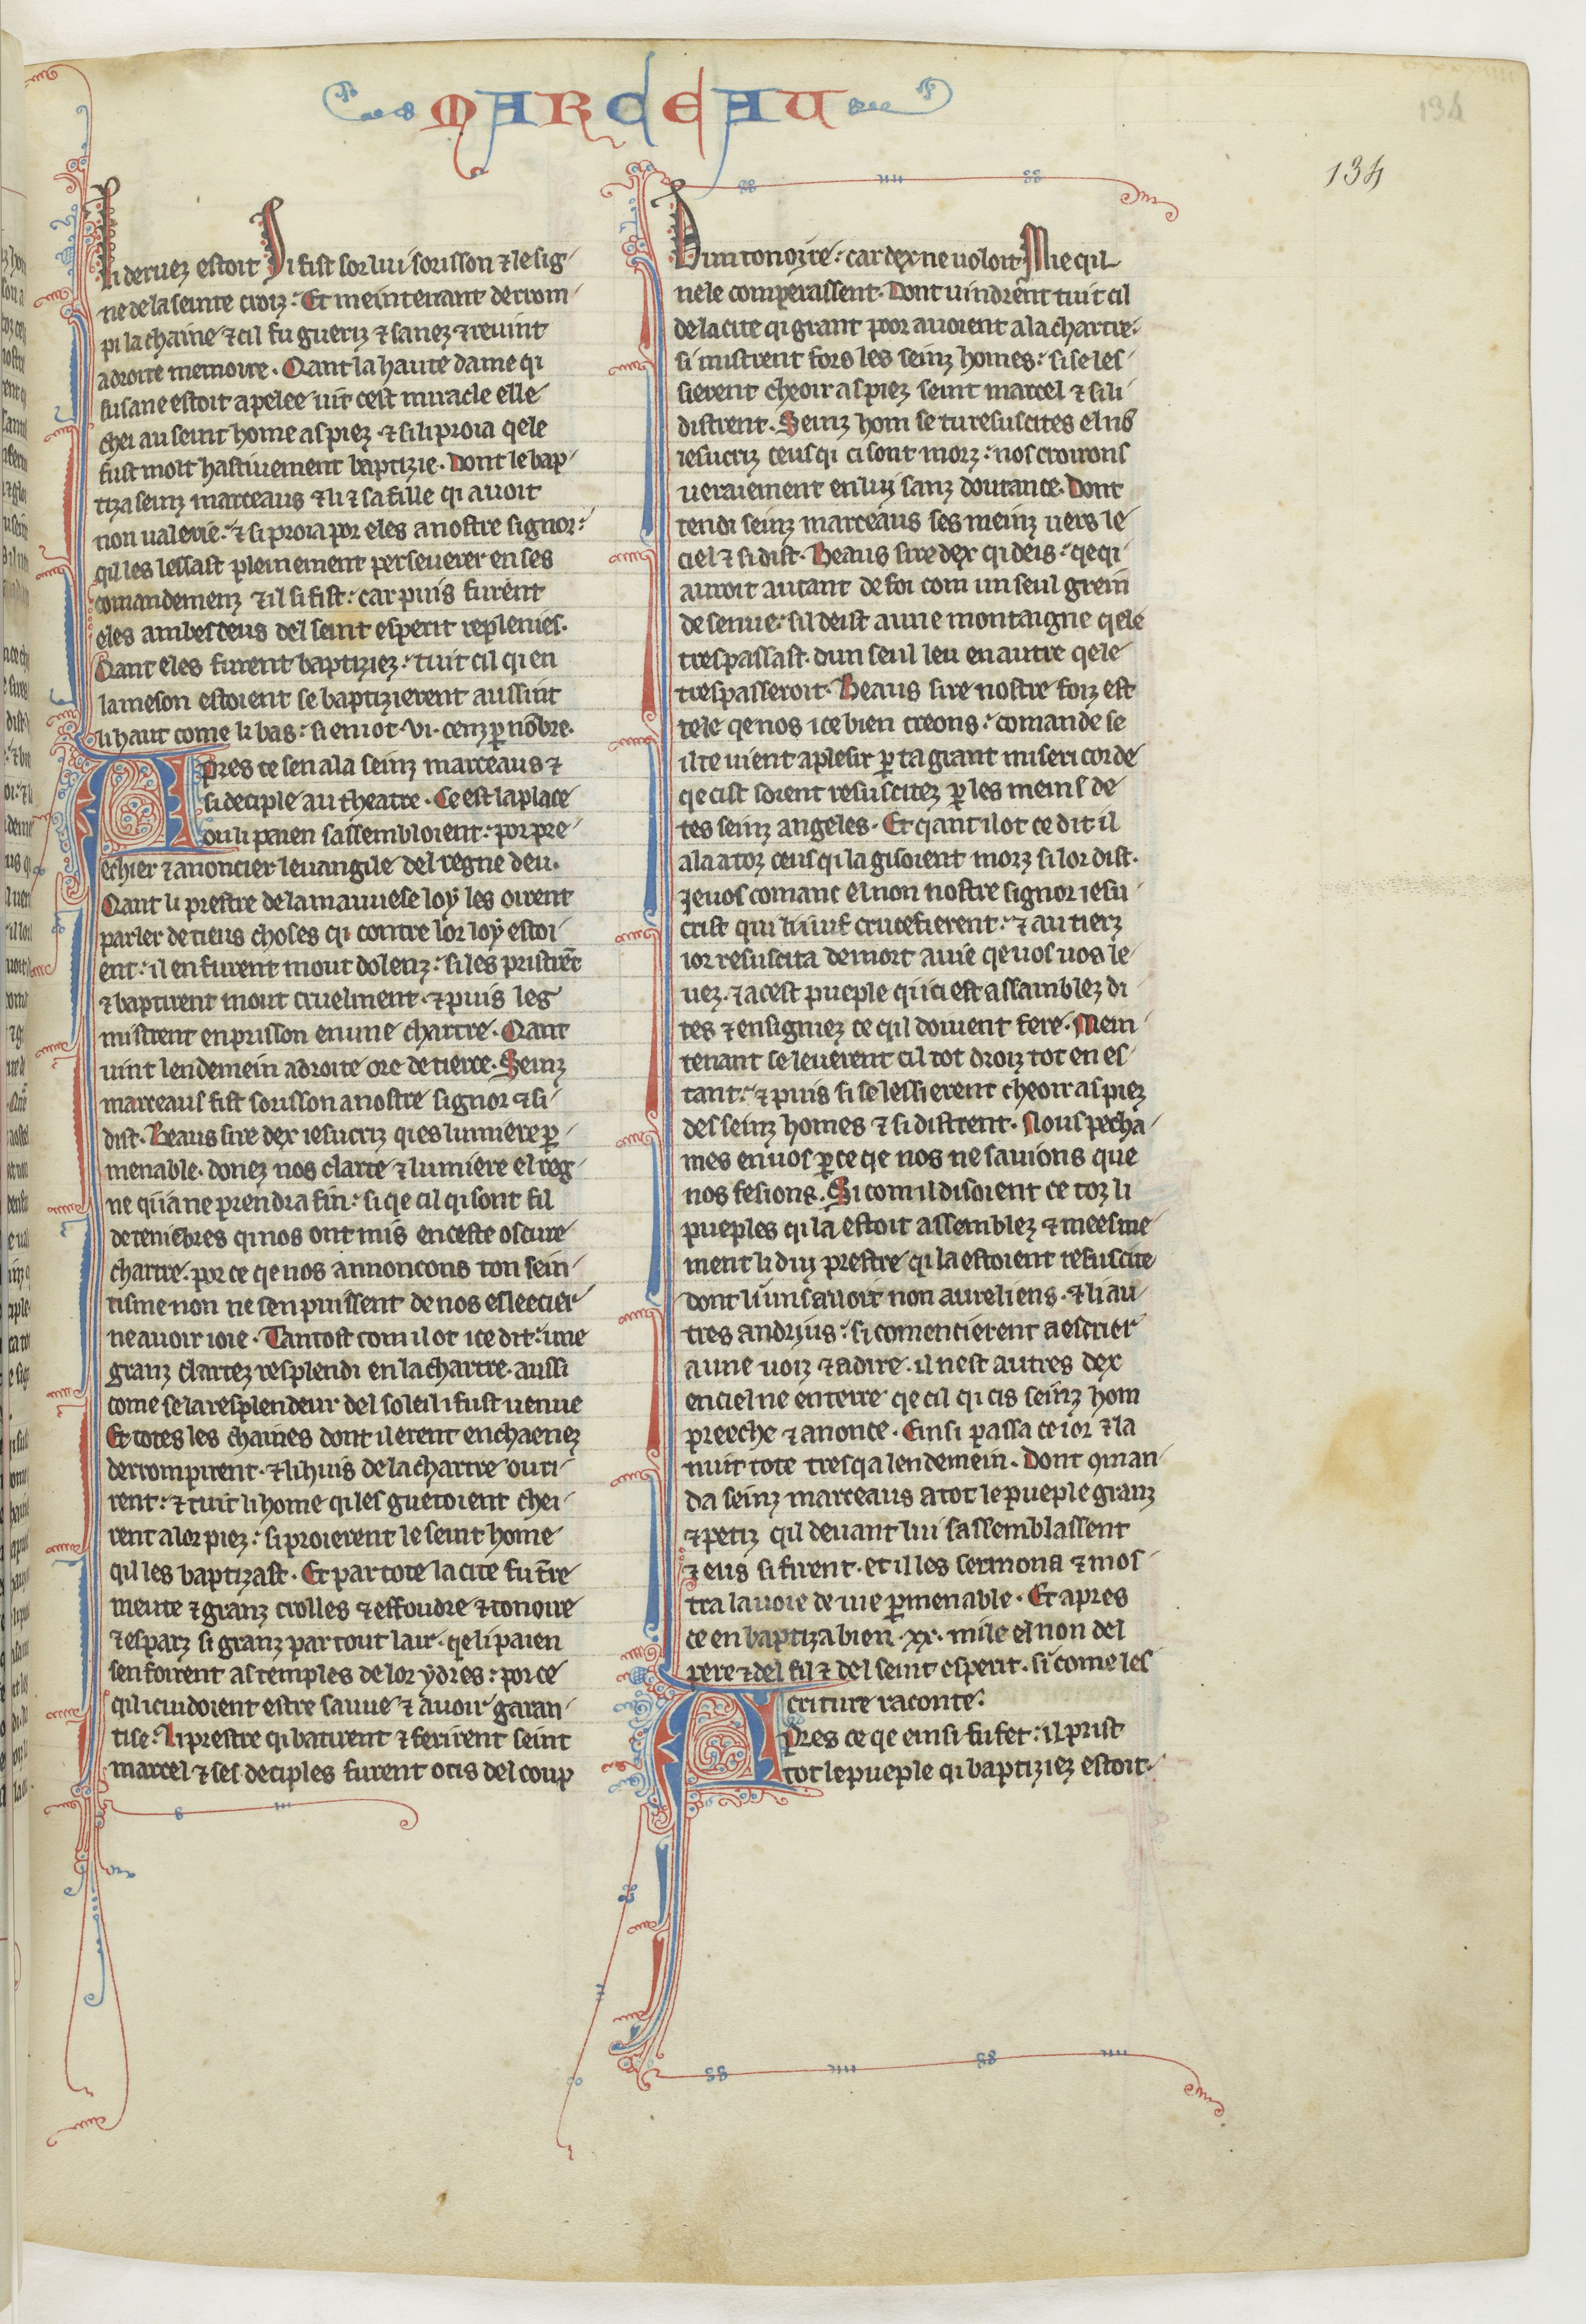 MARCEAU
134
134
li deruez estoit Ji fist sor lui sorisson ⁊ le sig-
ne de la seinte croiz: Et meintenant derrom-
pi la chaine ⁊ cil fu gueriz ⁊ sanez ⁊ reuint
a droite memoire. Qant la haute dame qi
susane estoit apelee uit cest miracle elle
chei au seint home as piez ⁊ si li proia qele
fust molt hastiuement baptizie. Dont le bap-
tiza seinz marceaus ⁊ li ⁊ sa fille qi auoit
non ualerie: ⁊ si proia por eles a nostre signor:
qil les lessast pleinement perseuerer en ses
comandemenz ⁊ il si fist: car puis furent
eles ambesdeus del seint esperit replenies.
Qant eles furent baptiziez: tuit cil qi en
la meson estoient se baptizierent aussint
li haut come li bas: si en i ot .vi. cenz p nõbre.
Apres ce sen ala seinz marceaus ⁊
si deciple au theatre. Ce est la place
ou li paien sassembloient: por pre-
echier ⁊ anoncier leuangile del regne deu.
Qant li prestre de la mauuese loy les oirent
parler de tieus choses qi contre lor loy estoi-
ent: il en furent mout dolenz: si les pristrẽt
⁊ baptirent mout cruelment ⁊ puis les
mistrent en prisson en une chartre. Qant
uint lendemein a droite ore de tierce. Seinz
marceaus fist sorisson a nostre signor ⁊ si
dist. Beaus sire dex iesucriz qi es lumiere p-
menable. donez nos clarte ⁊ lumiere el reg-
ne qi ia ne prendra fin: si qe cil qi sont fil
de teniebres qi nos ont mis en ceste oscure
chartre. por ce qe nos annoncons ton sein-
tisme non ne sen puissent de nos esleecier
ne auoir ioie. Tantost com il ot ice dit: une
granz clartez resplendi en la chartre. aussi
come se la resplendeur del soleil i fust uenue
Et totes les chaines dont il erent enchaenez
derrompirent. ⁊ li huis de la chartre ouri-
rent: ⁊ tuit li home qi les guetoient chei-
rent a lor piez: si proierent le seint home
qil les baptizast. Et par tote la cite fu t̃re
meute ⁊ granz crolles ⁊ effoudre ⁊ tonoire
⁊ esparz si granz par tout lair. qe li paien
sen foirent as temples de lor ydres: por ce
qil i cuidoient estre sauue ⁊ auoir garan-
tise: Li prestre qi batirent ⁊ ferirent seint
marcel ⁊ ses deciples furent ocis del coup
Dun tonoire: car dex ne uoloit Mie qil
ne le comperassent. Dont uindrent tuit cil
de la cite qi grant poor auoient a la chartre:
si mistrent fors les seinz homes: si se les-
sierent cheoir as piez seint marcel ⁊ si li
distrent. Seinz hom se tu resuscites el nõ
iesucriz ceus qi ci sont morz: nos croirons
ueraiement en luy sanz doutance. Dont
tendi seinz marceaus ses meinz uers le
ciel ⁊ si dist. Beaus sire dex qi deis: qe qi
auroit autant de foi com un seul grein
de senue: sil deist a une montaigne qele
trespassast. dun seul leu en autre qele
trespasseroit. Beaus sire nostre foiz est
tele qe nos ice bien creons: comande se
il te uient a plesir p ta grant misericorde
qe cist soient resuscitez p les meins de
tes seinz angeles. Et qant il ot ce dit il
ala a toz ceus qi la gisoient morz si lor dist.
Je uos comant el non nostre signor iesu
crist qui li iuif crucefierent: ⁊ au tierz
ior resuscita de mort a uie qe uos uos le-
uez. ⁊ a cest pueple qi ici est assamblez di-
tes ⁊ ensigniez ce qil doiuent fere. Mein-
tenant se leuerent cil tot droiz tot en es-
tant: ⁊ puis si se lessierent cheoir as piez
des seinz homes ⁊ si distrent. Nous pecha-
mes en uos p ce qe nos ne sauions que
nos fesions. Si com il disoient ce toz li
pueples qi la estoit assemblez ⁊ meesme-
ment li dui prestre qi la estoient resuscite
dont li uns auoit non aureliens. ⁊ li au-
tres andrius: si comencierent a escrier
a une uoiz ⁊ a dire. il nest autres dex
en ciel ne en terre qe cil qi cis seinz hom
preeche ⁊ anonce. Einsi passa ce ior ⁊ la
nuit tote tresqa lendemein. Dont 9man-
da seinz marceaus a tot le pueple granz
⁊ petiz qil deuant lui sassemblassent
⁊ eus si firent. et il les sermona ⁊ mos-
tra la uoie de uie pmenable. Et apres
ce en baptiza bien .xx. mile el non del
pere ⁊ del fil ⁊ del seint esperit. si come les-
criture raconte:
Apres ce qe einsi fu fet: il prist
tot le pueple qi baptiziez estoit.